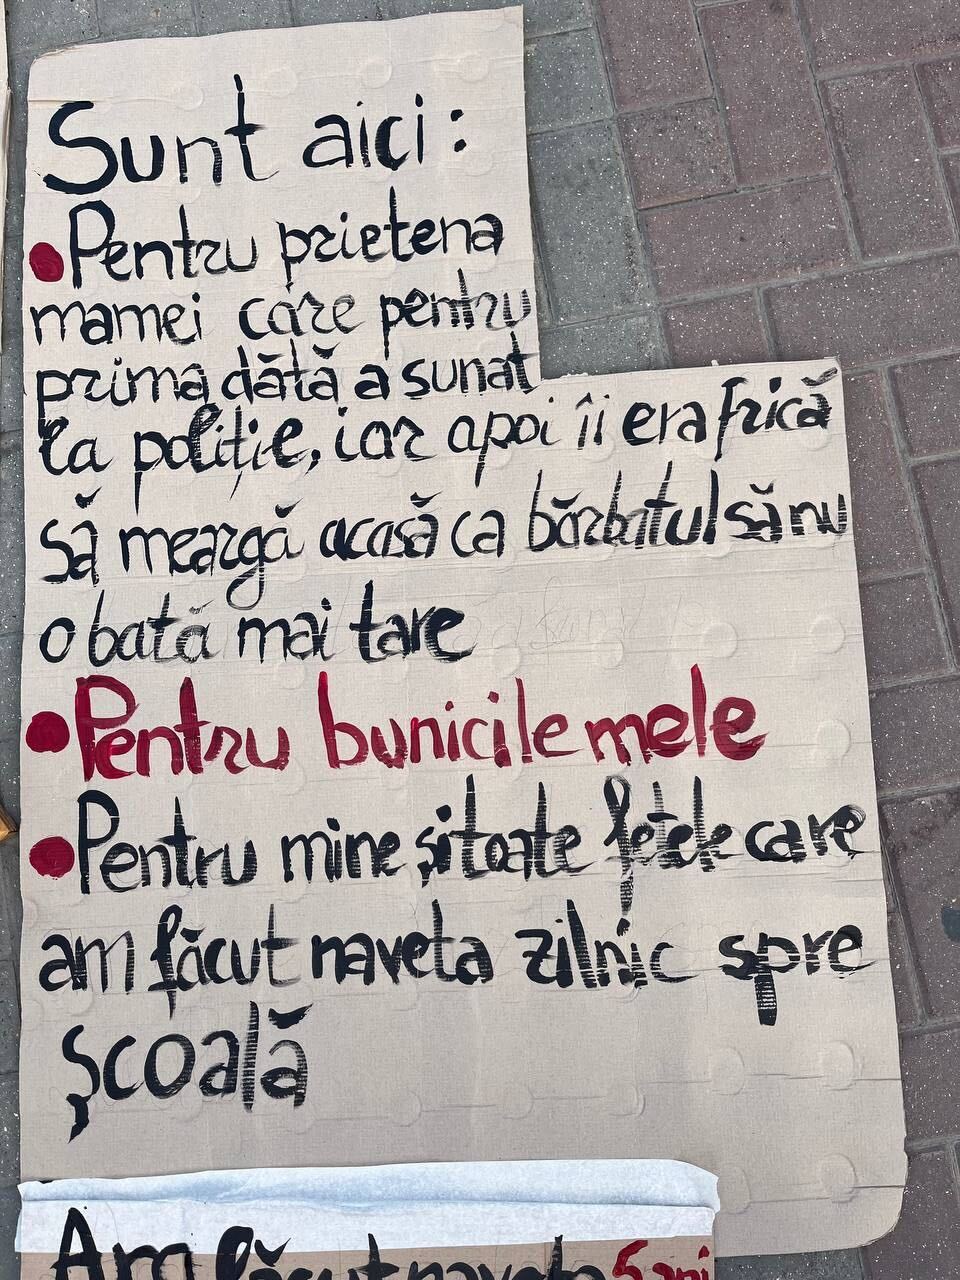 Sunt aici:
Pentru prietena
mamei care pentru
prima dată a sunat
la poliție, iar apoi îi era frică
să meargă acasă ca bărbatul să nu
o bată mai tare
Pentru bunicile mele
Pentru mine și toate fetele care
am făcut naveta zilnic spre
școală
Am făcut naveta 6 ani